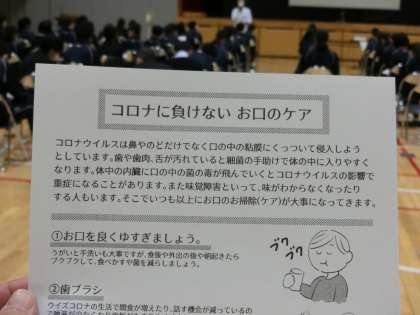 コロナに負けない お口のケア
コロナウイルスは鼻やのどだけでなく口の中の粘膜にくっついて侵入しよう
としています。歯や歯肉、舌が汚れていると細菌の手助けで体の中に入りやすく
なります。体中の内臓に口の中の菌の毒が飛んでいくとコロナウイルスの影響で
重症になることがあります。また味覚障害といって、味がわからなくなったり
する人もいます。そこでいつも以上にお口のお掃除(ケア)が大事になってきます。
①お口を良くゆすぎましょう。
うがいと手洗いも大事ですが、食後や外出の後や朝起きたら
ブクブクして、食べかすや菌を減らしましょう。
ブクブク
②歯ブラシ
ウイズコロナの生活で間食が増えたり、話す機会が減っているの